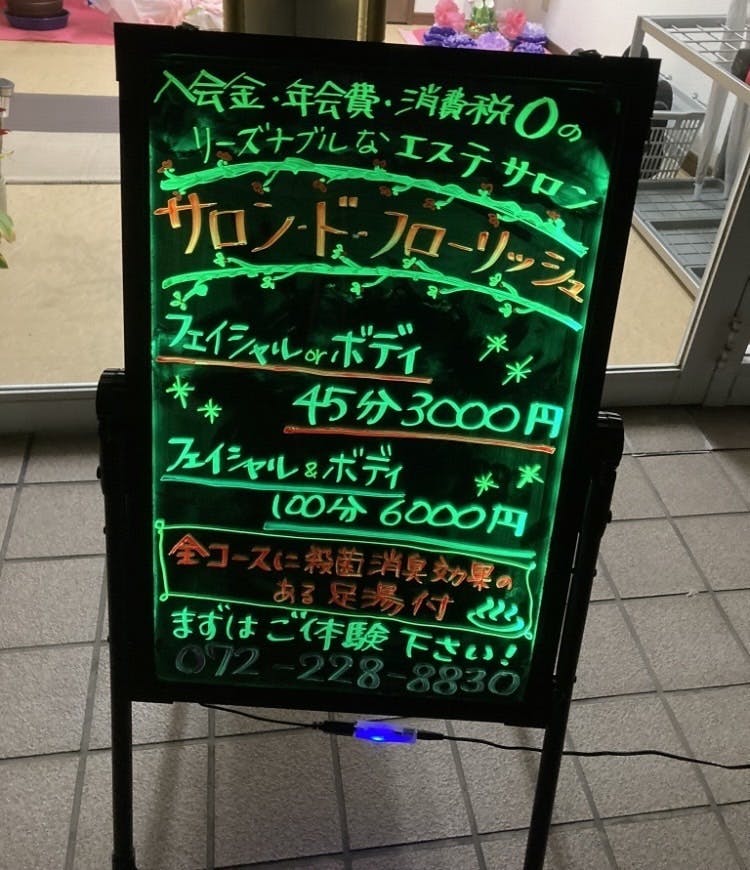 入会金・年会費・消費税0の
リーズナブルな エステサロン
サロン・ド・フローリッシュ
フェイシャル or ボディ
45分3000円
フェイシャル & ボディ
100分 6000円
全コースに殺菌消臭効果の
ある足湯付
まずはご体験下さい!
072-228-8830